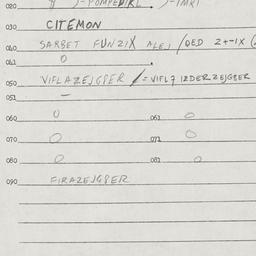 020
030 CITEMON
040 SARBET FUNZIX ALEJ /QED 2+-1X
041 0
050 VIFLAZEJGBER /=VIFL7 IZDERZEJGBER
051 -
060 0 061 0
070 0 071 0
080 0 081 0
090 FIRAZEJGBER